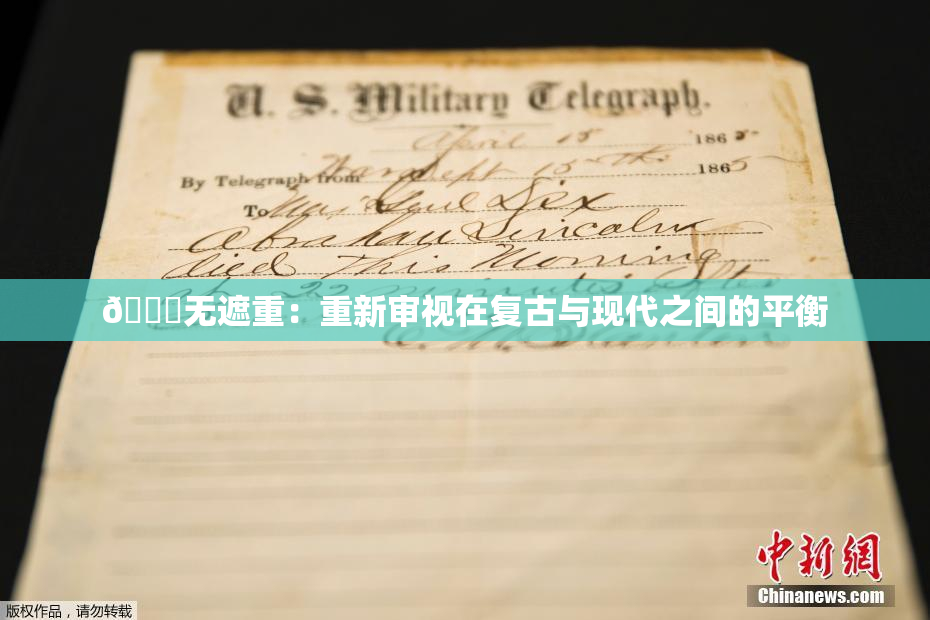 U. S. Military Telegraph.
April 15 1865
By Telegraph from War Dept 15th 1865
To Maj Genl Dix
Abraham Lincoln
died This Morning
at 22 minutes after
ð无遮重：重新审视在复古与现代之间的平衡
E. M. Stanton
中新网
Chinanews.com
版权作品，请勿转载